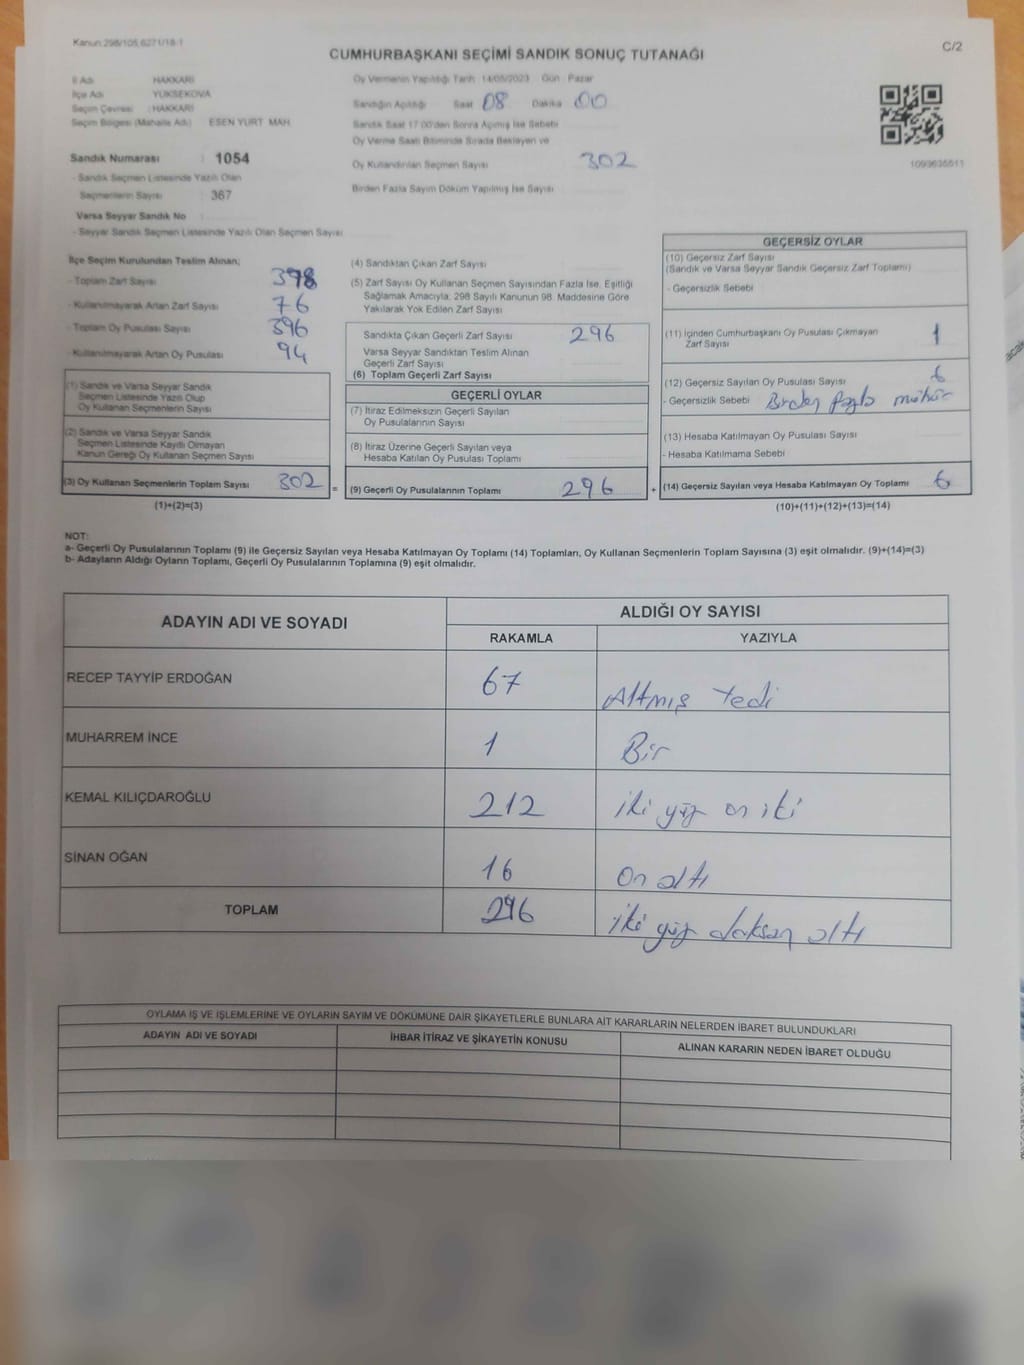 Kanun:298/105,6271/18-1
C/2
CUMHURBAŞKANI SEÇİMİ SANDIK SONUÇ TUTANAĞI
İl Adı : HAKKARİ
İlçe Adı : YÜKSEKOVA
Seçim Çevresi : HAKKARİ
Seçim Bölgesi (Mahalle Adı) : ESEN YURT MAH.
Sandık Numarası : 1054
- Sandık Seçmen Listesinde Yazılı Olan
Seçmenlerin Sayısı : 367
Varsa Seyyar Sandık No :
- Seyyar Sandık Seçmen Listesinde Yazılı Olan Seçmen Sayısı
Oy Vermenin Yapıldığı Tarih : 14/05/2023 Gün : Pazar
Sandığın Açıldığı Saat 08 Dakika 00
Sandık Saat 17:00'den Sonra Açılmış İse Sebebi
Oy Verme Saati Bitiminde Sırada Bekleyen ve
Oy Kullandırılan Seçmen Sayısı 302
Birden Fazla Sayım Döküm Yapılmış İse Sayısı
1099635511
İlçe Seçim Kurulundan Teslim Alınan;
- Toplam Zarf Sayısı 378
- Kullanılmayarak Artan Zarf Sayısı 76
- Toplam Oy Pusulası Sayısı 396
- Kullanılmayarak Artan Oy Pusulası 94
(1) Sandık ve Varsa Seyyar Sandık
Seçmen Listesinde Yazılı Olup
Oy Kullanan Seçmenlerin Sayısı
(2) Sandık ve Varsa Seyyar Sandık
Seçmen Listesinde Kayıtlı Olmayan
Kanun Gereği Oy Kullanan Seçmen Sayısı
(3) Oy Kullanan Seçmenlerin Toplam Sayısı 302 =
(1)+(2)=(3)
(4) Sandıktan Çıkan Zarf Sayısı
(5) Zarf Sayısı Oy Kullanan Seçmen Sayısından Fazla İse, Eşitliği
Sağlamak Amacıyla, 298 Sayılı Kanunun 98. Maddesine Göre
Yakılarak Yok Edilen Zarf Sayısı
Sandıkta Çıkan Geçerli Zarf Sayısı 296
Varsa Seyyar Sandıktan Teslim Alınan
Geçerli Zarf Sayısı
(6) Toplam Geçerli Zarf Sayısı
GEÇERLİ OYLAR
(7) İtiraz Edilmeksizin Geçerli Sayılan
Oy Pusulalarının Sayısı
(8) İtiraz Üzerine Geçerli Sayılan veya
Hesaba Katılan Oy Pusulası Toplamı
(9) Geçerli Oy Pusulalarının Toplamı 296 +
GEÇERSİZ OYLAR
(10) Geçersiz Zarf Sayısı
(Sandık ve Varsa Seyyar Sandık Geçersiz Zarf Toplamı)
- Geçersizlik Sebebi
(11) İçinden Cumhurbaşkanı Oy Pusulası Çıkmayan
Zarf Sayısı 1
(12) Geçersiz Sayılan Oy Pusulası Sayısı 6
- Geçersizlik Sebebi Birden fazla mühür
(13) Hesaba Katılmayan Oy Pusulası Sayısı
- Hesaba Katılmama Sebebi
(14) Geçersiz Sayılan veya Hesaba Katılmayan Oy Toplamı 6
(10)+(11)+(12)+(13)=(14)
NOT:
a- Geçerli Oy Pusulalarının Toplamı (9) ile Geçersiz Sayılan veya Hesaba Katılmayan Oy Toplamı (14) Toplamları, Oy Kullanan Seçmenlerin Toplam Sayısına (3) eşit olmalıdır. (9)+(14)=(3)
b- Adayların Aldığı Oyların Toplamı, Geçerli Oy Pusulalarının Toplamına (9) eşit olmalıdır.
ADAYIN ADI VE SOYADI
ALDIĞI OY SAYISI
RAKAMLA YAZIYLA
RECEP TAYYİP ERDOĞAN 67 Altmış Yedi
MUHARREM İNCE 1 Bir
KEMAL KILIÇDAROĞLU 212 iki yüz on iki
SİNAN OĞAN 16 On altı
TOPLAM 296 iki yüz doksan altı
OYLAMA İŞ VE İŞLEMLERİNE VE OYLARIN SAYIM VE DÖKÜMÜNE DAİR ŞİKAYETLERLE BUNLARA AİT KARARLARIN NELERDEN İBARET BULUNDUKLARI
ADAYIN ADI VE SOYADI
İHBAR İTİRAZ VE ŞİKAYETİN KONUSU
ALINAN KARARIN NEDEN İBARET OLDUĞU